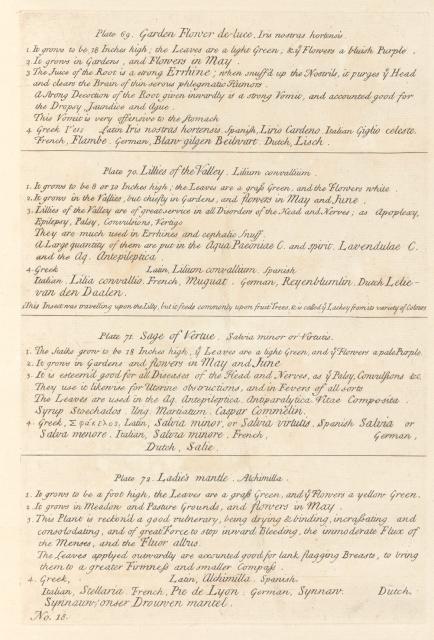 Plate 69. Garden Flower de-luce. Iris nostras hortensis.
1. It grows to be 18 Inches high; the Leaves are a light Green, & yͤ Flowers a bluish Purple.
2. It grows in Gardens, and Flowers in May.
3 The Juice of the Root is a strong Errhine; when snuff'd up the Nostrils, it purges yͤ Head
and clears the Brain of thin serous phlegmatic Humors.
A Strong Decoction of the Root given inwardly is a strong Vomit, and accounted good for
the Dropsy, Jaundice and Ague.
This Vomit is very offensive to the Stomach
4 Greek Latin Iris nostras hortensis. Spanish, Lirio Cardeno, Italian Giglio celeste.
French, Flambe. German, Blaw gilgen Beilwurt. Dutch, Lisch.
Plate 70. Lillies of the Valley. Lilium convallium.
1. It grows to be 8 or 10 Inches high, the Leaves are a graſs Green, and the Flowers white.
2. It grows in the Vallies, but chiefly in Gardens, and flowers in May and June.
3. Lillies of the Valley are of great service in all Disorders of the Head and Nerves; as Apoplexy,
Epilepsy, Palsy, Convulsions, Vertigo
They are much used in Errhines and cephalic Snuff.
A Large quantity of them are put in the Aqua Paeoniae C. and spirit. Lavendulae C.
and the Aq. Antepileptica.
4. Greek Latin, Lilium convallium. Spanish
Italian. Lilia convallio. French, Muguat. German, Reyenblumlin. Dutch Lelie-
van den Daalen.
This Insect was travelling upon the Lilly, but it feeds commonly upon fruit Trees, & is called yͤ Lackey from its variety of Colours
Plate 71. Sage of Vertue. Salvia minor or Virtutis.
1. The Stalks grow to be 18 Inches high, yͤ Leaves are a light Green, and yͤ Flowers a pale Purple.
2. It grows in Gardens and flowers in May and June
3. It is esteem'd good for all Diseases of the Head and Nerves, as yͤ Palsy, Convulsions &c.
They use it likewise for Uterine obstructions, and in Fevers of all sorts
The Leaves are used in the Aq. Antepileptica. Antiparalytica. Vitae Composita.
Syrup Stoechados. Ung. Martiatum. Caspar Commelin.
4. Greek, Σφάκελος, Latin, Salvia minor, or Salvia virtutis, Spanish Salvia or
Salva menore. Italian, Salvia minore. French, German,
Dutch, Salie.
Plate 72. Ladie's mantle. Alchimilla.
1. It grows to be a foot high, the Leaves are a graſs Green, and yͤ Flowers a yellow Green.
2. It grows in Meadow and Pasture Grounds, and flowers in May.
3 This Plant is reckon'd a good vulnerary, being drying & binding, incraſsating and
consolodating, and of great Force to stop inward Bleeding, the immoderate Flux of
the Menses, and the Fluor albus.
The Leaves applyed outwardly are accounted good for lank flagging Breasts, to bring
them to a greater Firmneſs and smaller Compaſs.
4. Greek, Latin, Alchimilla. Spanish.
Italian, Stellaria. French, Pie de Lyon. German, Synnaw. Dutch.
Synnauw, onser Vrouwen mantel.
No. 18.